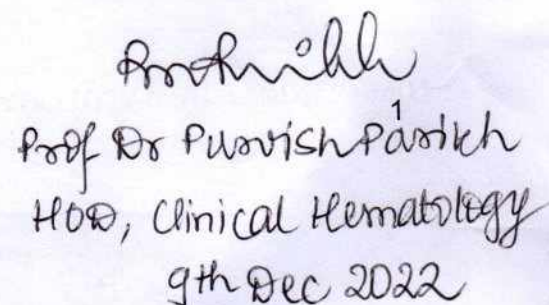 Prof Dr Purvish Parikh
1
HOD, Clinical Hematology
9th Dec 2022